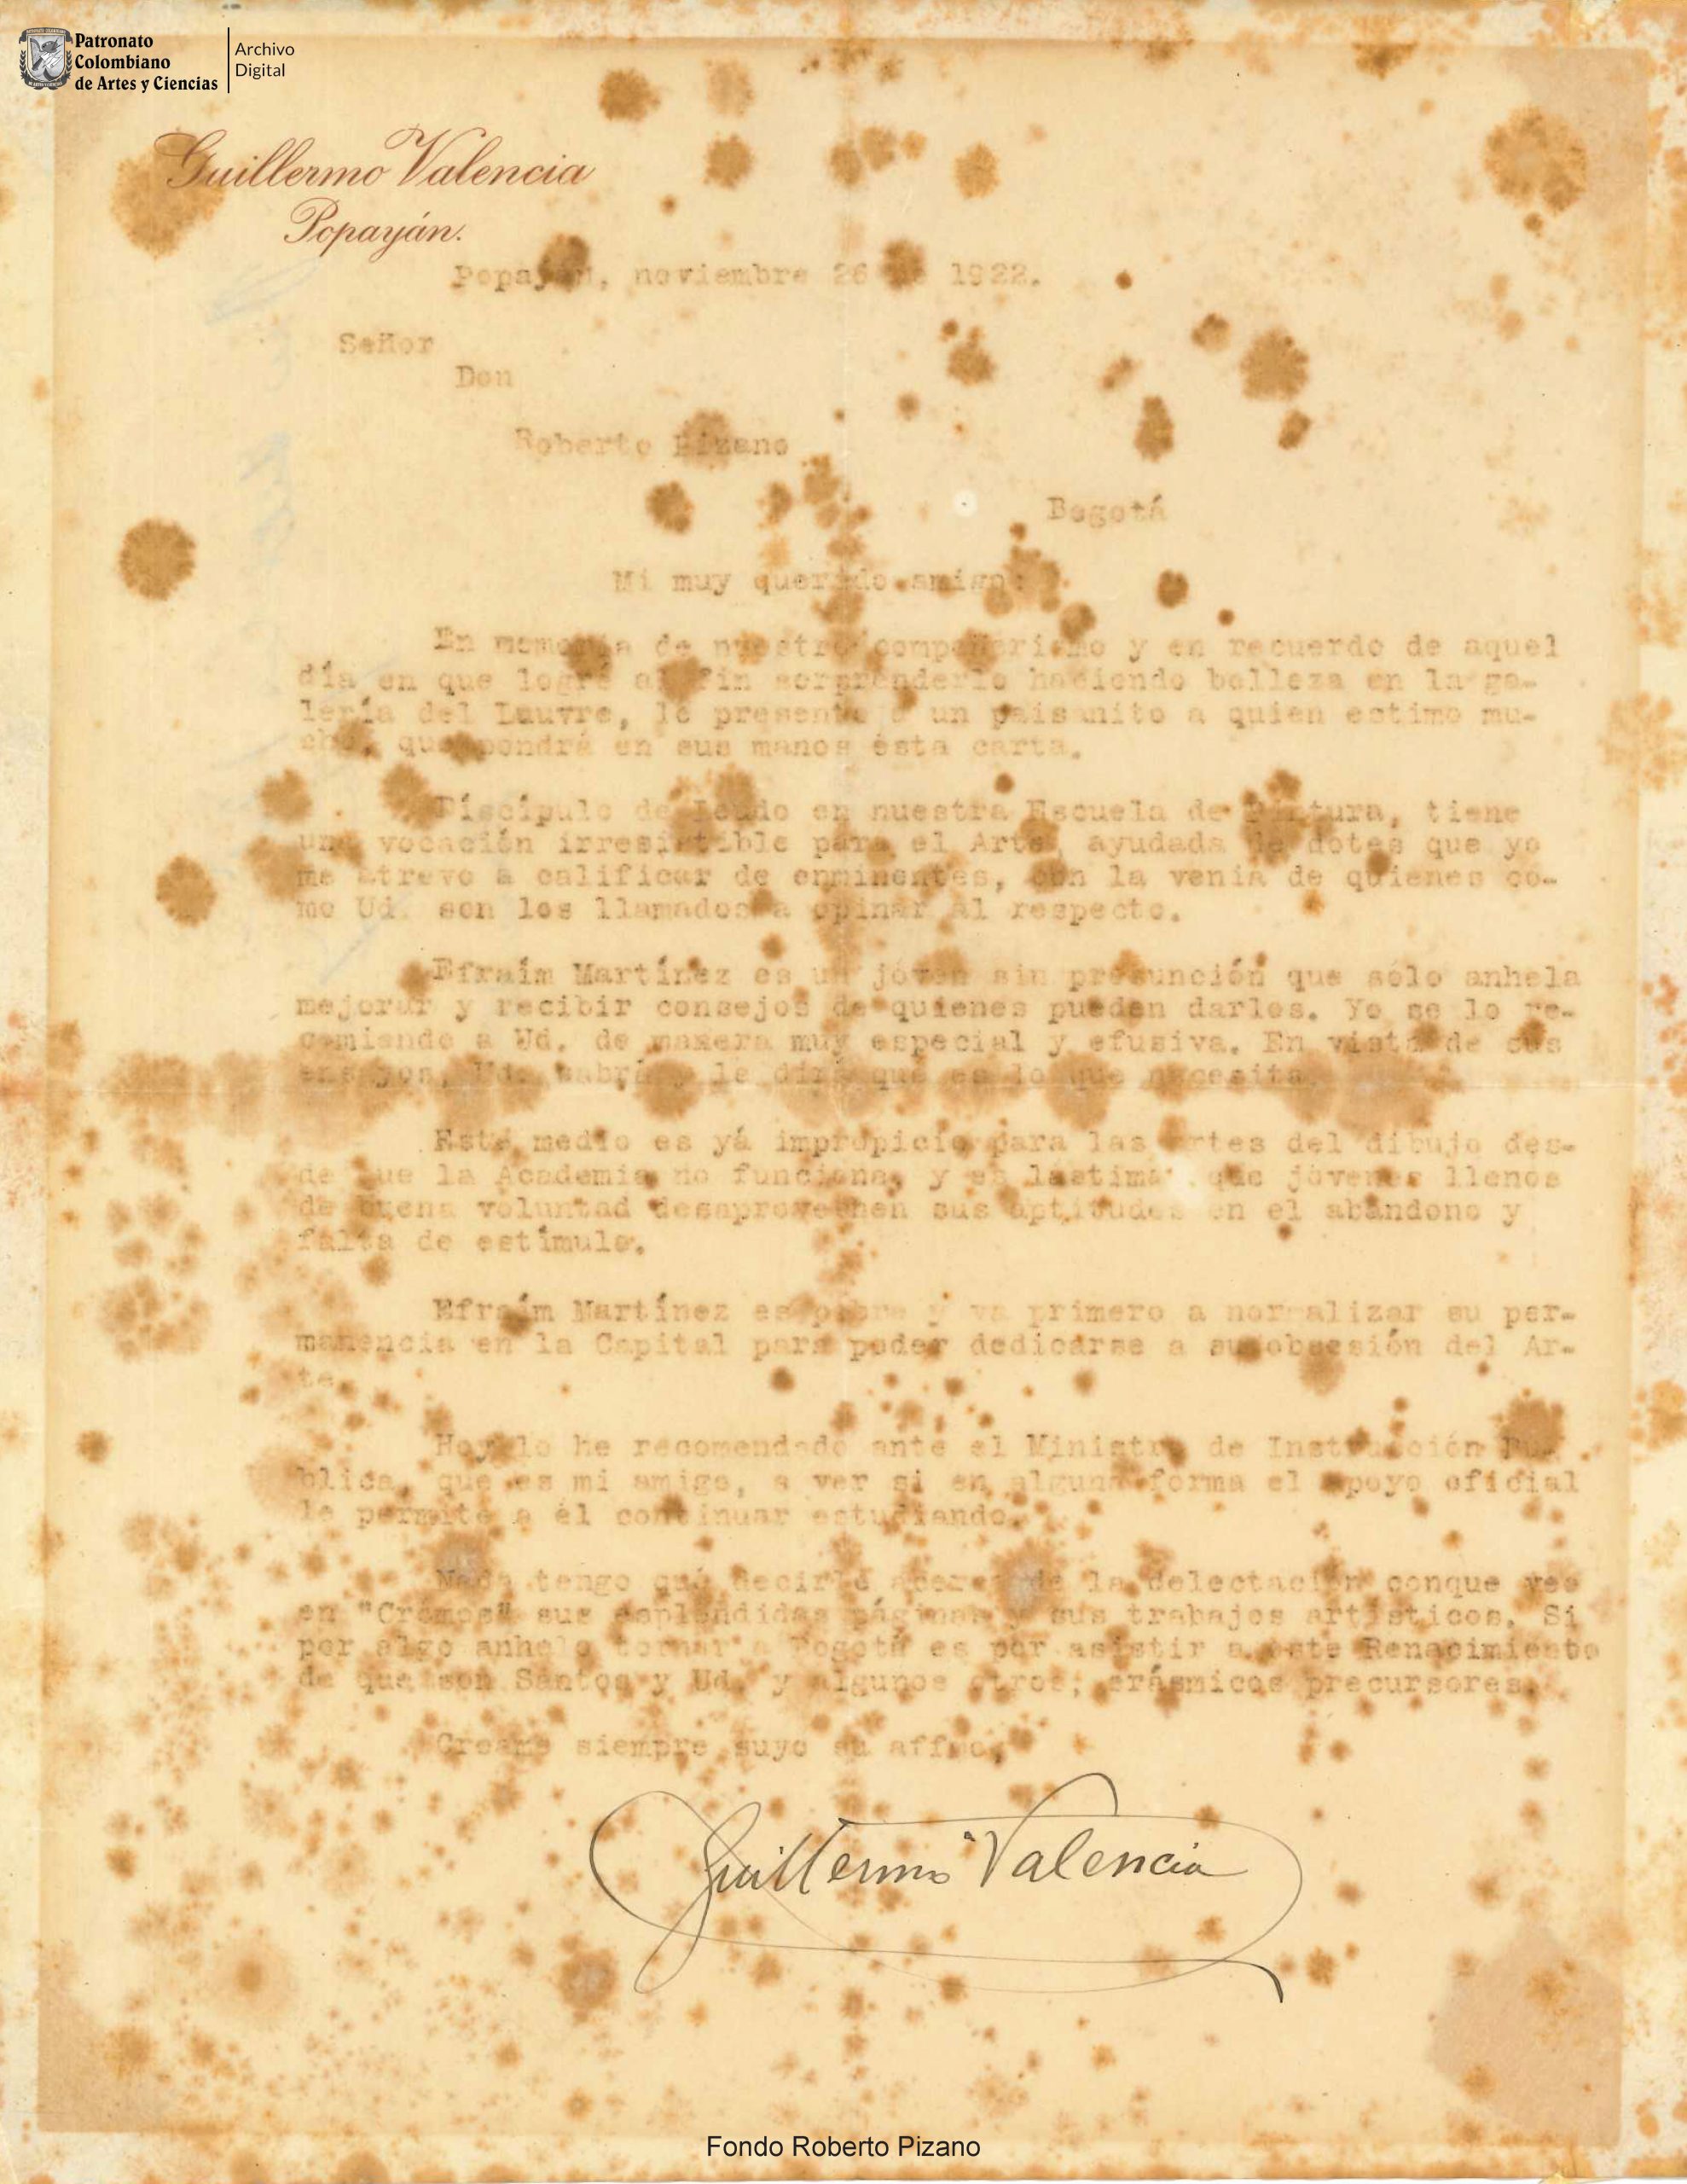 Patronato
Colombiano
de Artes y Ciencias
Archivo
Digital
Guillermo Valencia
Popayán.
Popayán, noviembre 26 de 1922.
Señor
Don
Roberto Pizano
Bogotá
Mi muy querido amigo:
En memoria de nuestro compañerismo y en recuerdo de aquel
día en que logré al fin sorprenderlo haciendo belleza en la ga-
lería del Louvre, le presento a un paisanito a quien estimo mu-
cho, que pondrá en sus manos ésta carta.
Discípulo de Leudo en nuestra Escuela de Pintura, tiene
una vocación irresistible para el Arte, ayudada de dotes que yo
me atrevo a calificar de enminentes, con la venia de quienes co-
mo Ud. son los llamados a opinar al respecto.
Efraím Martínez es un jóven sin presunción que sólo anhela
mejorar y recibir consejos de quienes pueden darlos. Yo se lo re-
comiendo a Ud. de manera muy especial y efusiva. En vista de sus
ensayos, Ud. sabrá y le dirá qué es lo que necesita.
Este medio es yá impropicio para las artes del dibujo des-
de que la Academia no funciona, y es lástima que jóvenes llenos
de buena voluntad desaprovechen sus aptitudes en el abandono y
falta de estímulo.
Efraím Martínez es pobre y va primero a normalizar su per-
manencia en la Capital para poder dedicarse a su obsesión del Ar-
te.
Hoy lo he recomendado ante el Ministro de Instrucción Pú-
blica, que es mi amigo, a ver si en alguna forma el apoyo oficial
le permite a él continuar estudiando.
Nada tengo qué decirle acerca de la delectación conque veo
en "Cromos" sus espléndidas páginas y sus trabajos artísticos. Si
por algo anhelo tornar a Bogotá es por asistir a este Renacimiento
de que son Santos y Ud. y algunos otros, erásmicos precursores.
Créame siempre suyo su affmo,
Guillermo Valencia
Fondo Roberto Pizano